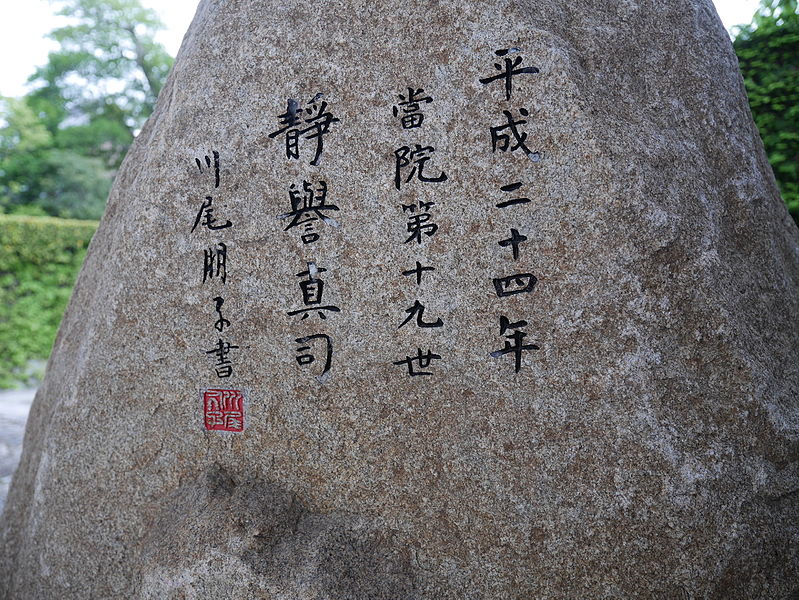 平成二十四年
當院第十九世
靜譽真司
川尾朋子書
川尾朋子